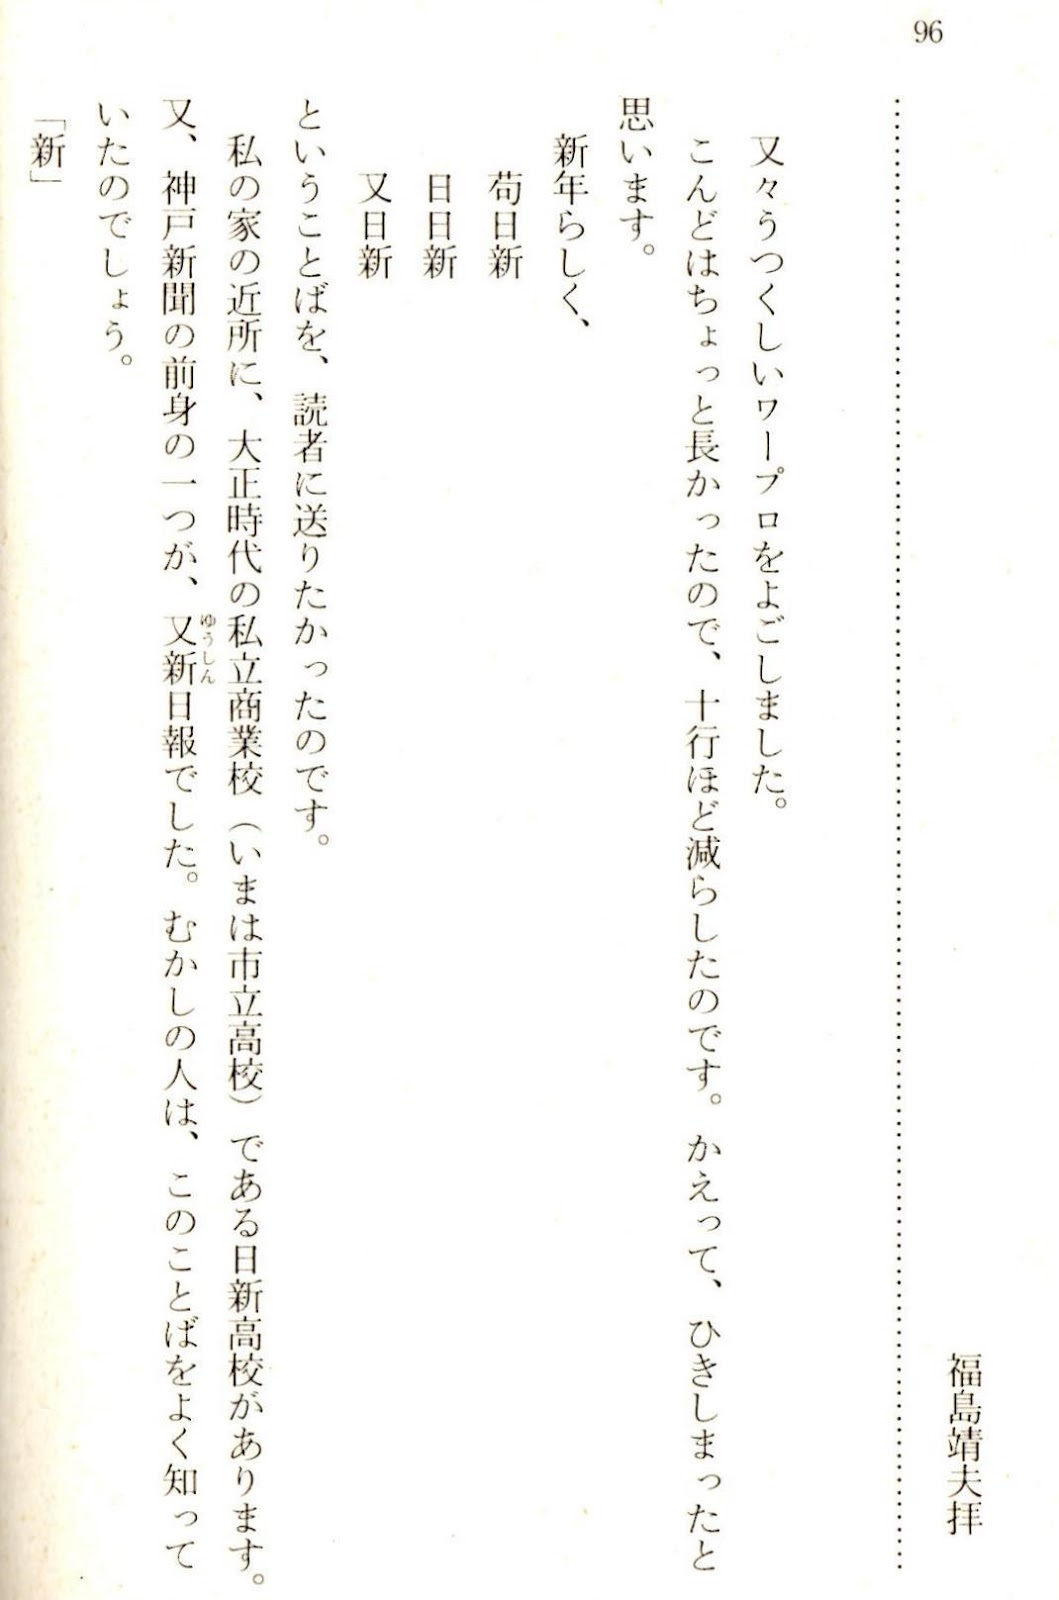 96
福島靖夫拝
又々うつくしいワープロをよごしました。
こんどはちょっと長かったので、十行ほど減らしたのです。かえって、ひきしまったと
思います。
新年らしく、
苟日新
日日新
又日新
ということばを、読者に送りたかったのです。
私の家の近所に、大正時代の私立商業校（いまは市立高校）である日新高校があります。
又、神戸新聞の前身の一つが、又新日報でした。むかしの人は、このことばをよく知って
ゆうしん
いたのでしょう。
「新」